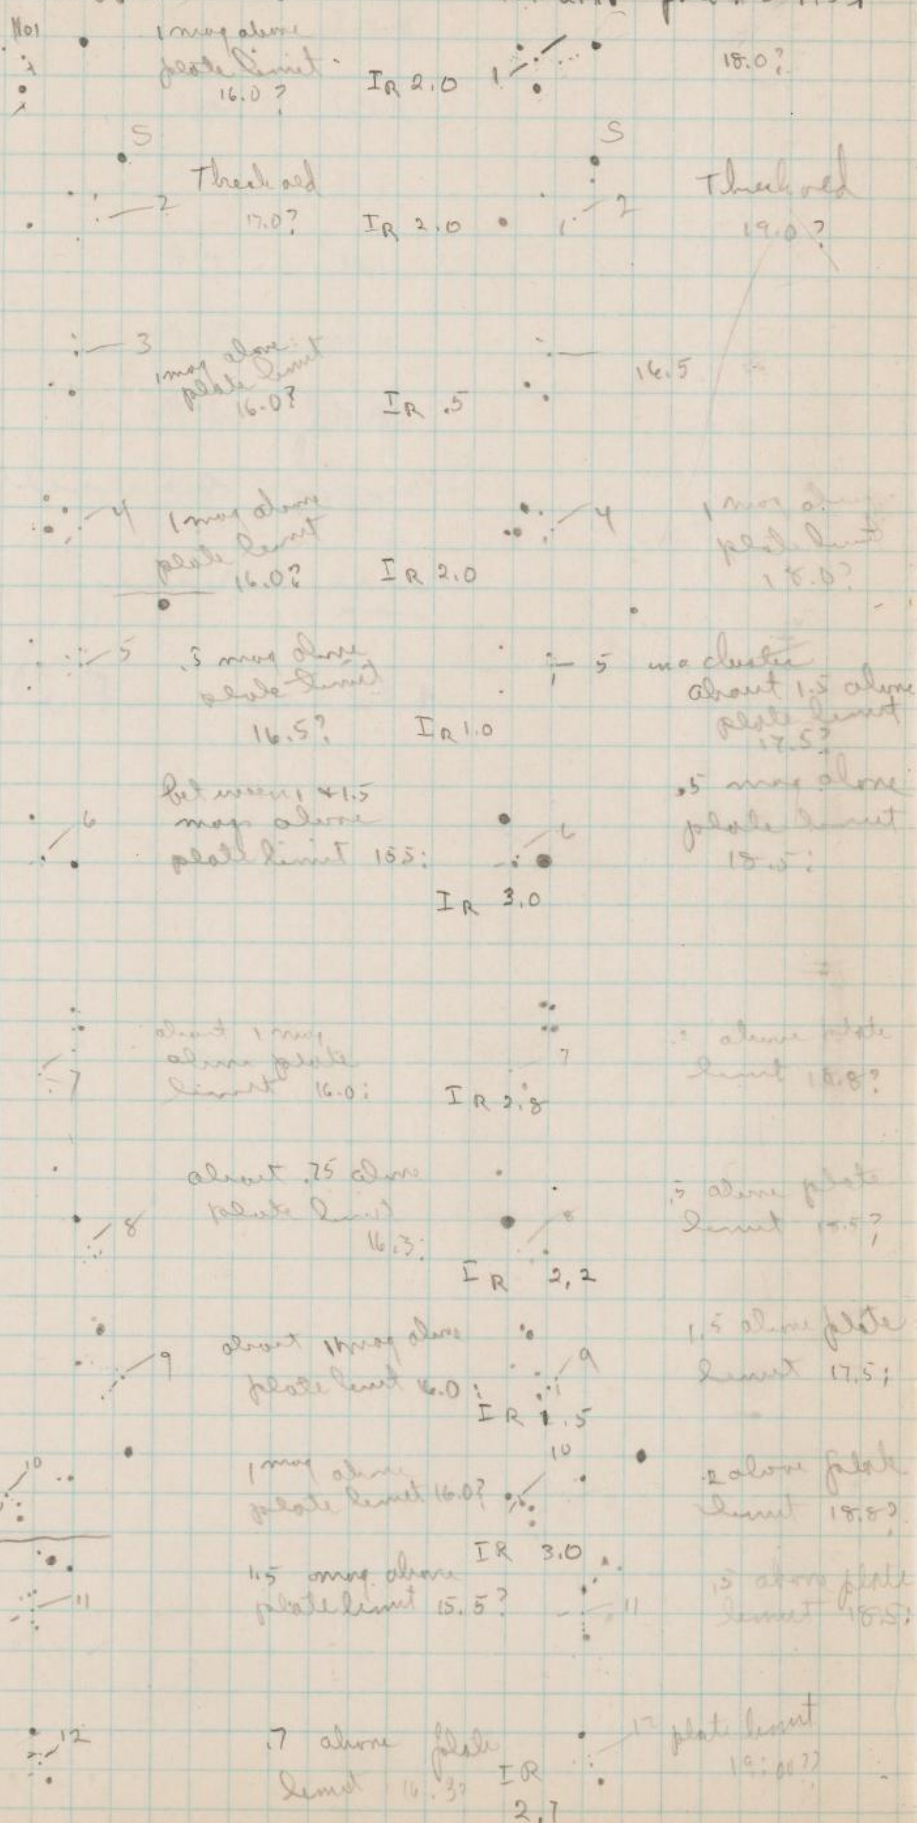 No1
1 mag above
plate limit
16.0?
IR 2.0
1
18.0?
S
Threshold
2
17.0?
IR 2.0
S
2
Threshold
19.0?
3
1 mag above
plate limit
16.0?
IR .5
16.5
4
1 mag above
plate limit
16.0?
IR 2.0
4
1 mag above
plate limit
18.0?
5
.5 mag above
plate limit
16.5?
IR 1.0
5
in a cluster
about 1.5 above
plate limit
17.5?
6
between 1 + 1.5
mag above
plate limit 15.5:
6
IR 3.0
.5 mag above
plate limit
18.5:
7
about 1 mag
above plate
limit 16.0:
7
IR 2.8
above plate
limit 18.8?
8
about .75 above
plate limit
16.3:
8
IR 2,2
.5 above plate
limit 18.5?
9
about 1 mag above
plate limit 16.0:
9
IR 1.5
1.5 above plate
limit 17.5:
10
1 mag above
plate limit 16.0?
10
IR 3.0
.2 above plate
limit 18.8?
11
1.5 mag above
plate limit 15.5?
11
.5 above plate
limit 18.5:
12
.7 above plate
limit 16.3?
IR
2.7
12
plate limit
19.00??